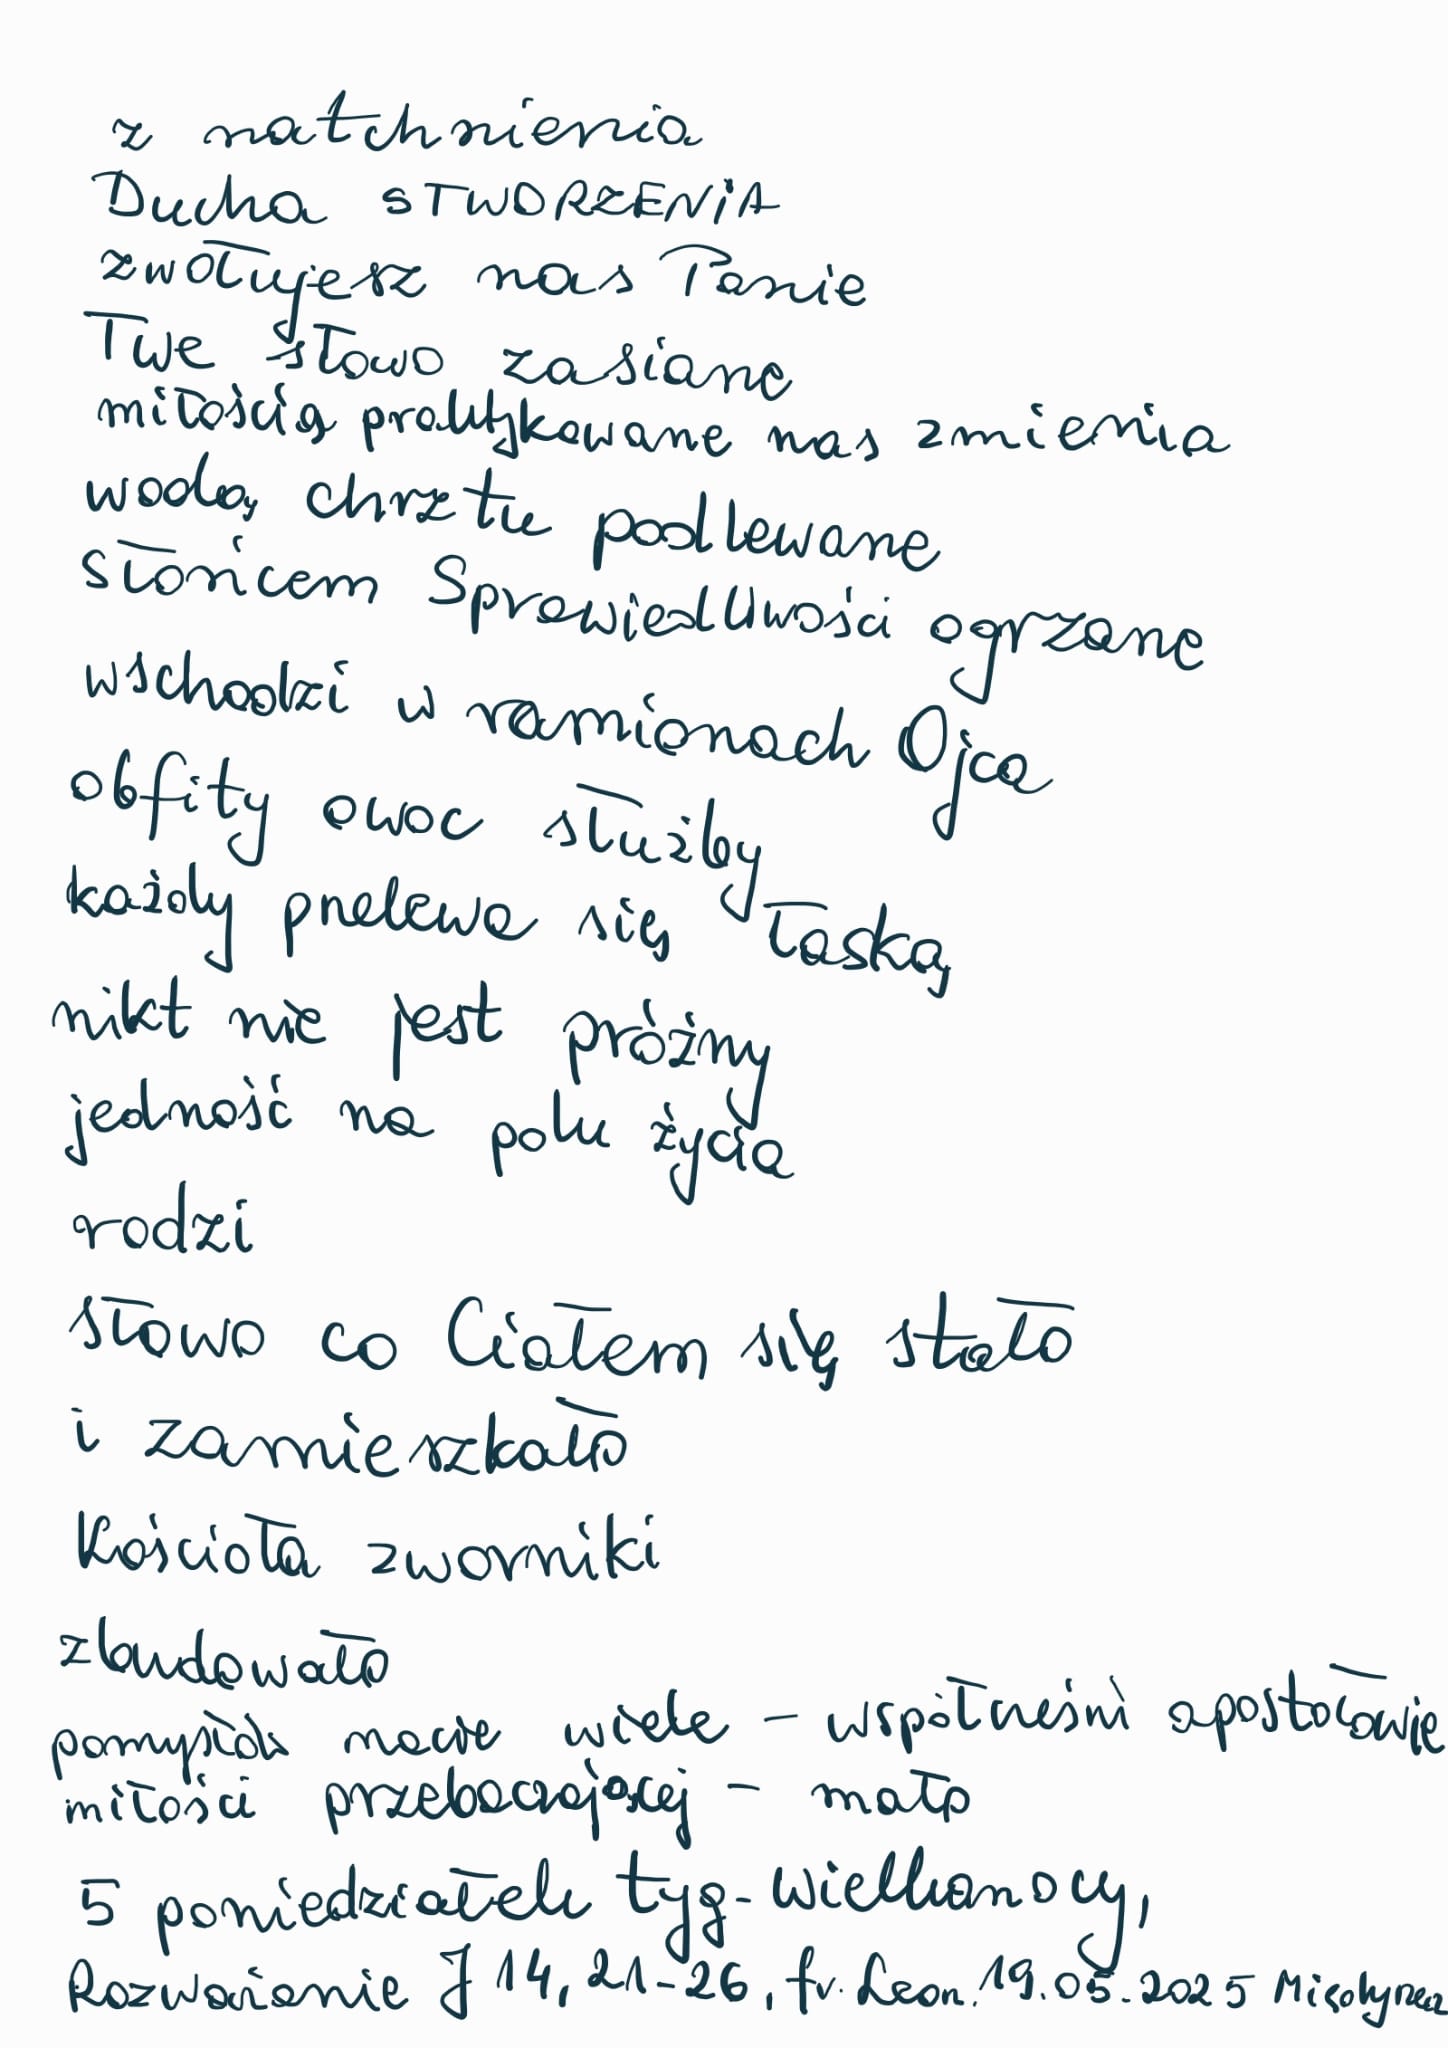 z natchnienia
Ducha STWORZENiA
zwołujesz nas Panie
Twe słowo zasiane
miłością praktykowane nas zmienia
wodą chrztu podlewane
słońcem Sprawiedliwości ogrzane
wschodzi w ramionach Ojca
obfity owoc służby
każdy przelewa się łaską
nikt nie jest próżny
jedność na polu życia
rodzi
słowo co Ciałem się stało
i zamieszkało
Kościoła zworniki
zbudowało
pomysłów macie wiele - współcześni apostołowie
miłości przebaczającej - mało
5 poniedziałek tyg. wielkanocy,
Rozważanie J 14, 21-26, fr. Leon. 19.05.2025 Międzyrzecz